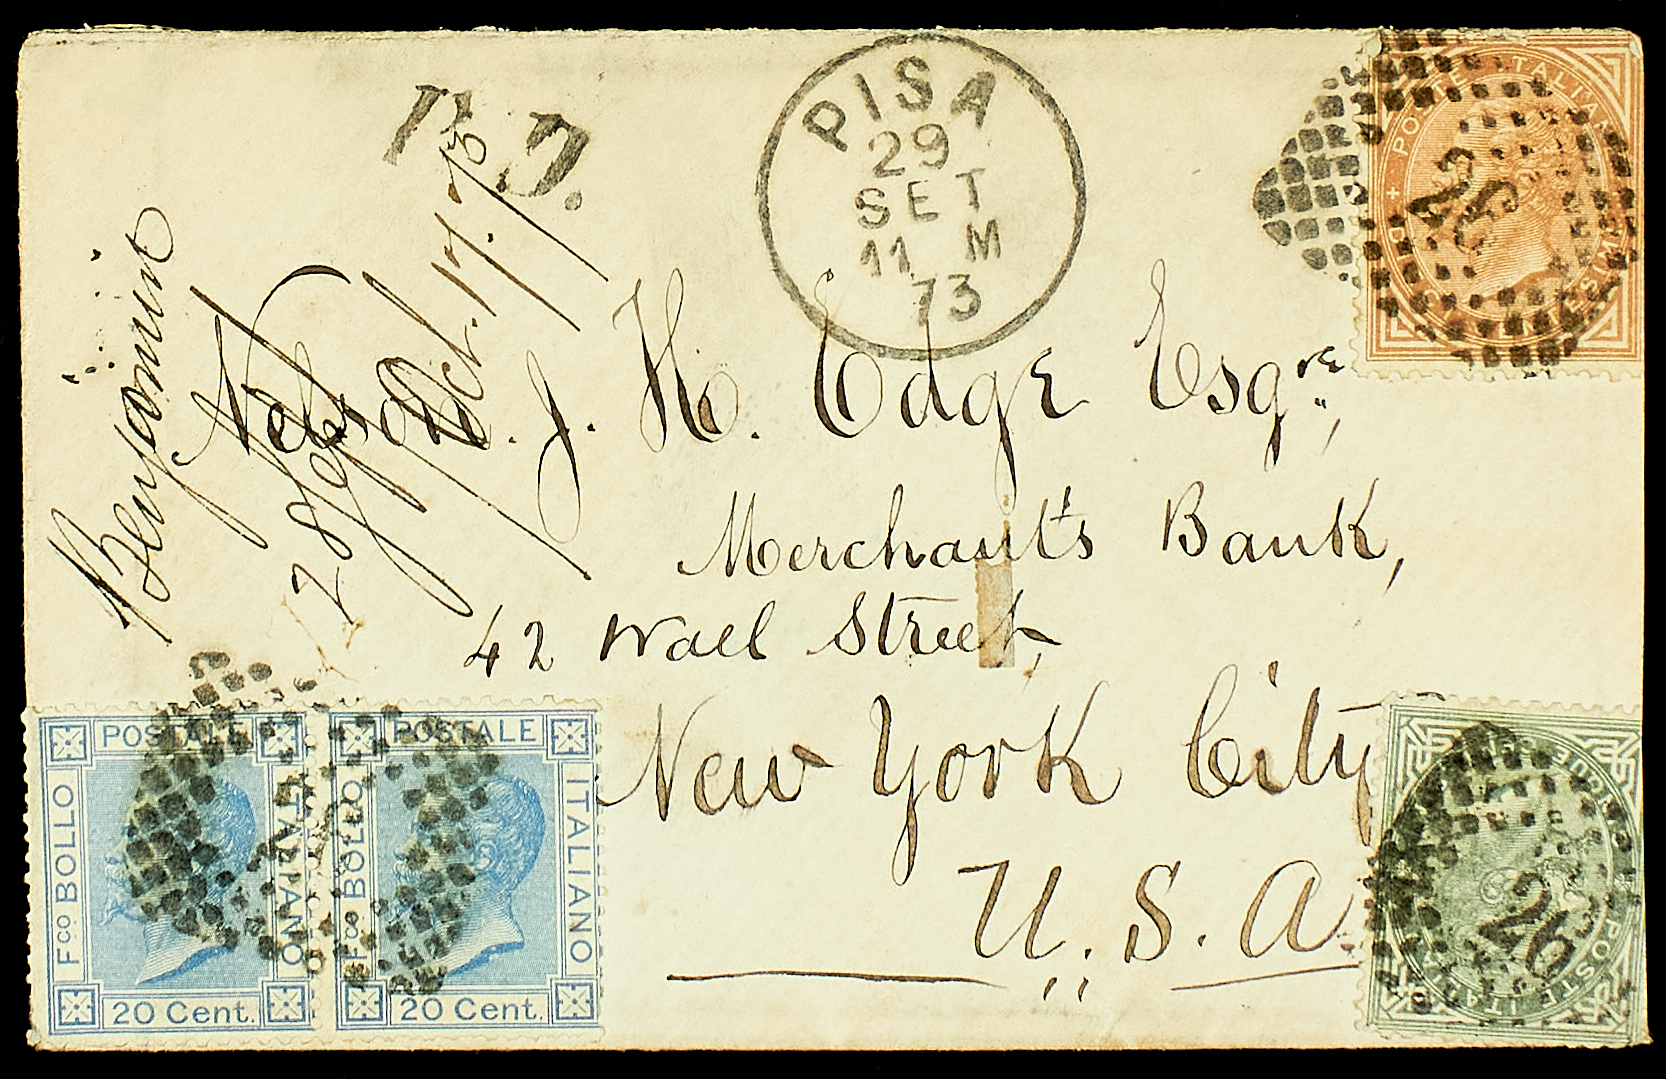 P.D.
PISA
29
SET
11 M
73
POSTE ITALIANE
Benjamin
Nelson.
28 Sept
Oct. 17. 73
J. H. Edge Esqre.,
Merchant's Bank,
42 Wall Street,
New York City
U. S. A.
POSTALE
Fco BOLLO
ITALIANO
20 Cent.
POSTALE
Fco BOLLO
ITALIANO
20 Cent.
26
POSTE ITALIANE